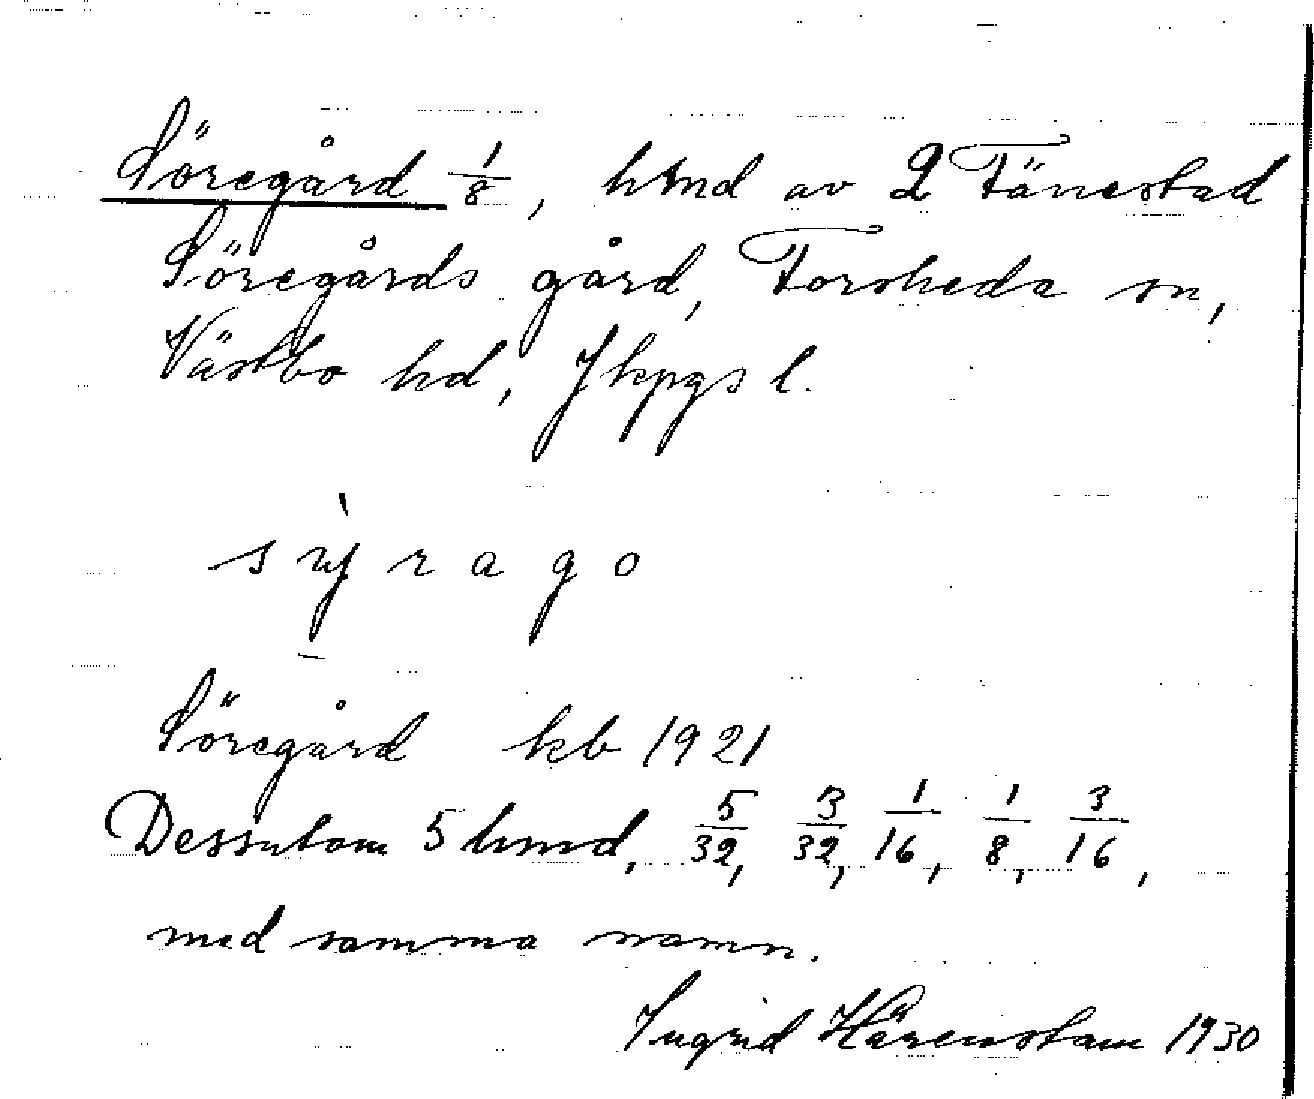 Söregård 1/8, hmd av 2 Tånestad
Söregårds gård, Forsheda sn,
Västbo hd, Jkpgs l.
sỳrago
Söregård kb 1921
Dessutom 5 hmd, 5/32, 3/32, 1/16, 1/8, 3/16,
med samma namn.
Ingrid Härenstam 1930